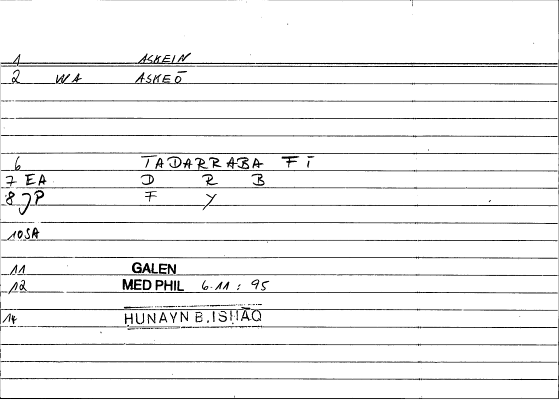 1 ASKEIN
2 WA ASKEŌ
6 TADARRABA FĪ
7 EA D R B
8 JP F Y
10 SA
11 GALEN
12 MED PHIL 6-11 : 95
14 HUNAYN B. ISḤĀQ